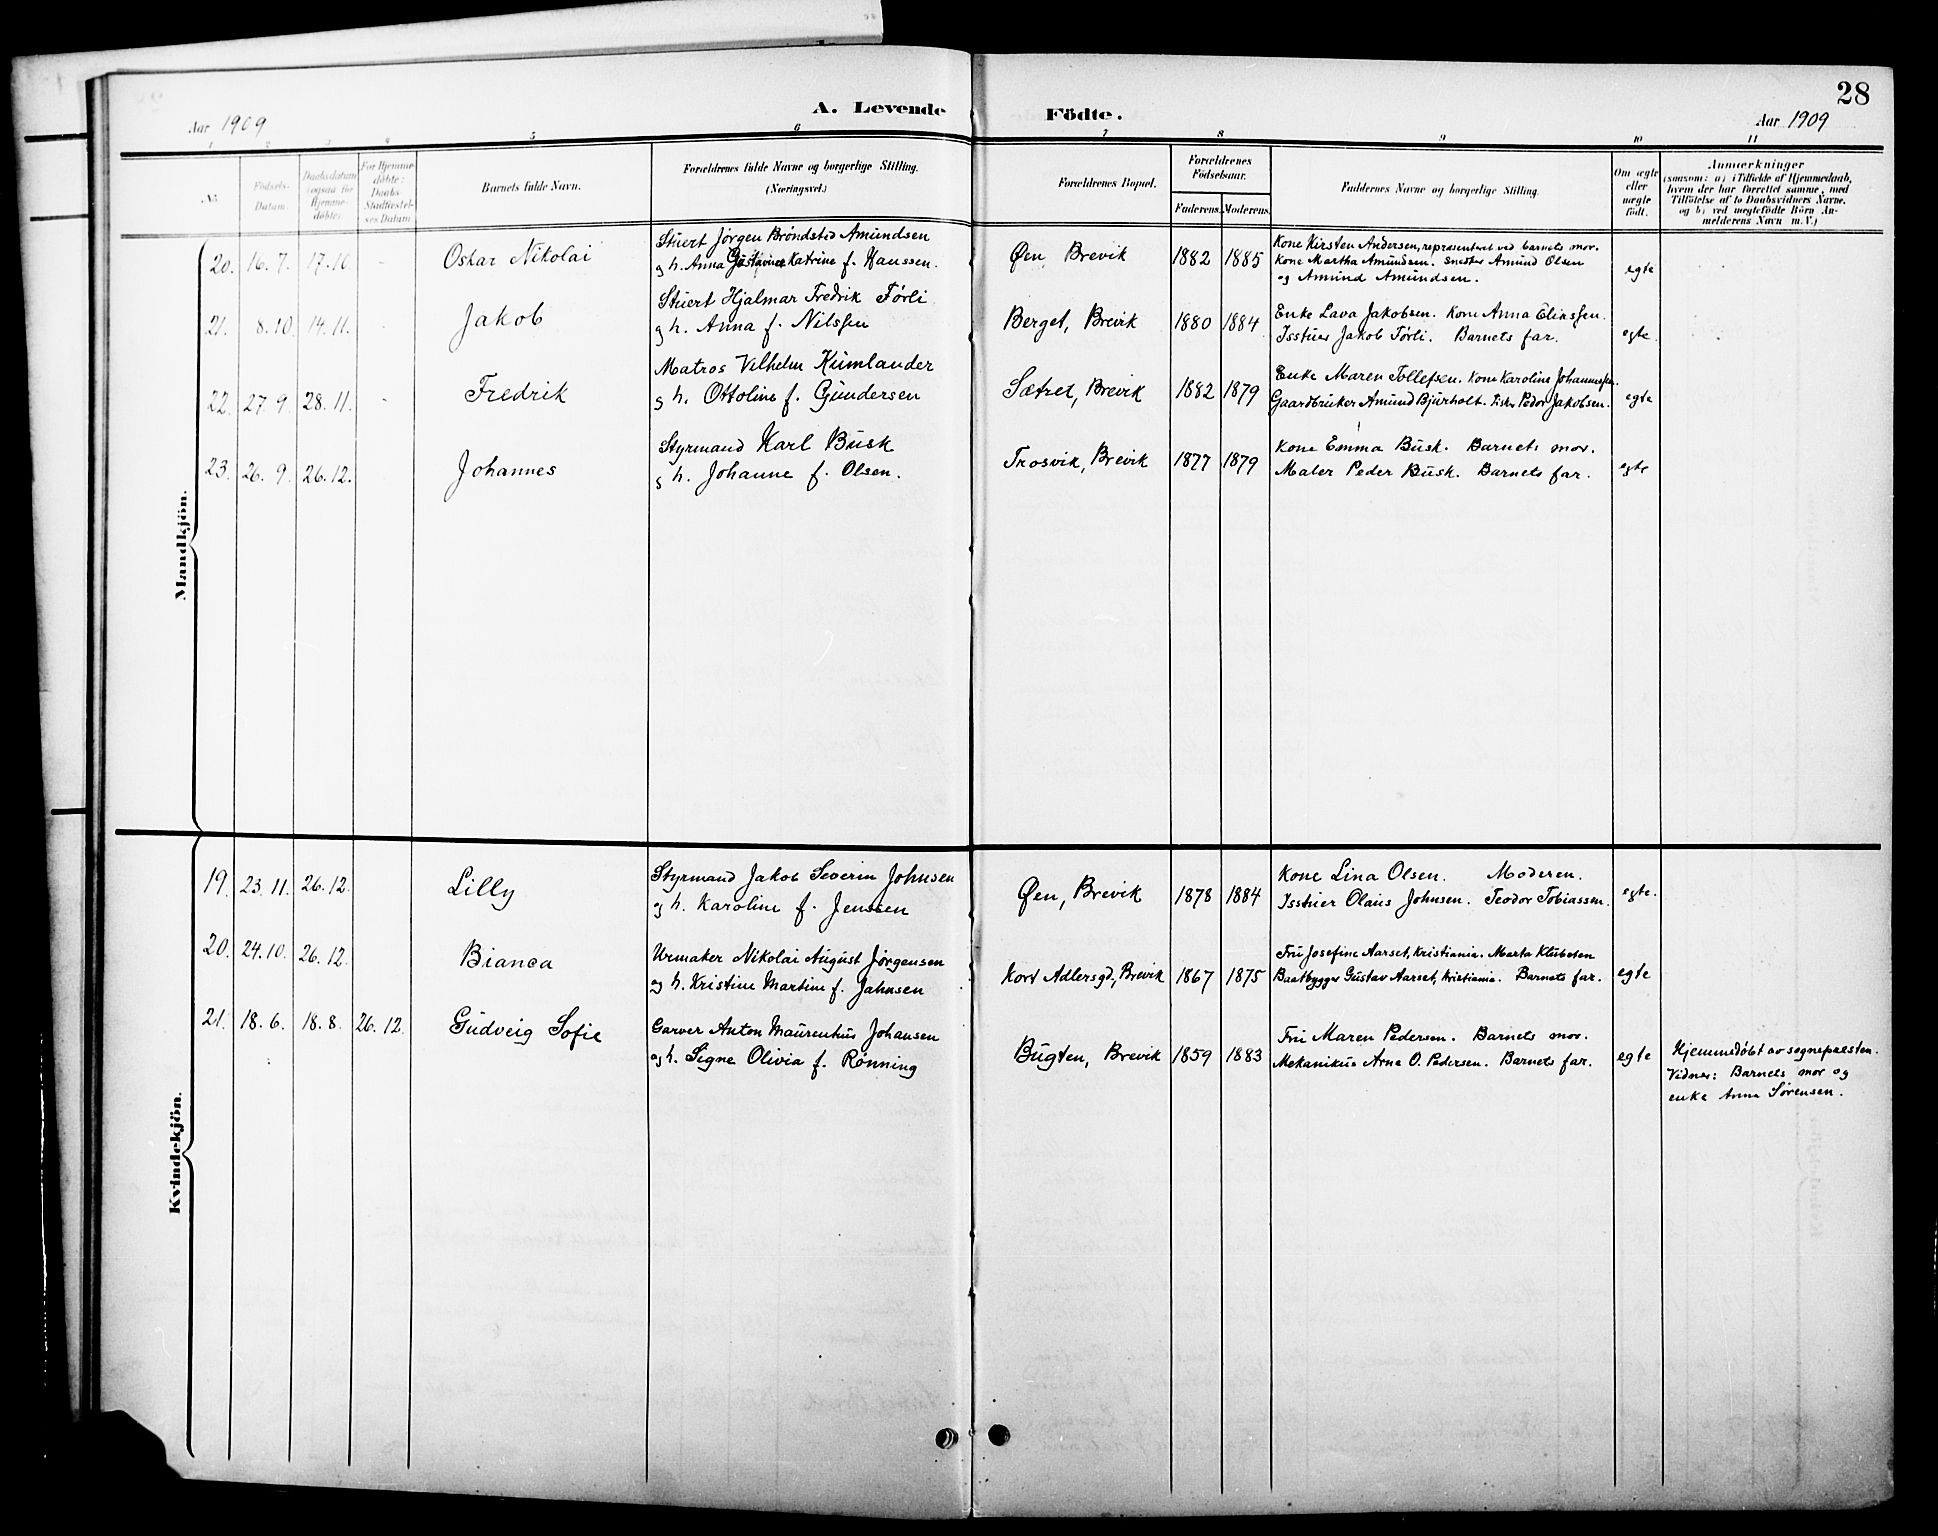 28
A. Levende Födte.
Aar 1909
Aar 1909
1 2 3 4 5 6 7 8 9 10 11
No.
Födsels-
Datum.
Daabsdatum
(ogsaa for
Hjemme-
döbte).
For Hjemme-
döbte:
Daabs-
Stadfæstel-
ses Datum
Barnets fulde Navn.
Forældrenes fulde Navne og borgerlige Stilling.
(Næringsvei.)
Forældrenes Bopæl.
Forældrenes
Födselsaar.
Faderens. Moderens.
Faddernes Navne og borgerlige Stilling.
Om ægte
eller
uægte
födt.
Anmærkninger
(saasom: a) i Tilfælde af Hjemmedaab,
hvem der har forrettet samme, med
Tilföielse af to Daabsvidners Navne,
og b) ved uægtefödte Börn An-
melderens Navn m. V.)
Mandkjön.
20. 16. 7. 17. 10 - Oskar Nikolai
Stuert Jörgen Bröndsted Amundsen
og h. Anna Gustavine Katrine f. Hanssen.
Øen Brevik 1882 1885
Kone Kirsten Andersen, repræsenteret ved barnets mor.
Kone Martha Amundsen. Amund Olsen
og Amund Amundsen.
egte
21. 8. 10. 14. 11. - Jakob
Stuert Hjalmar Fredrik Törli
og h. Anna f. Nilssen
Berget, Brevik 1880 1884
Enke Lava Jakobsen. Kone Anna Eliassen.
Jakob Törli. Barnets far.
egte.
22. 27. 9. 28. 11. - Fredrik
Matros Vilhelm Kumlander
og h. Ottoline f. Gundersen
Sætret, Brevik 1882 1879
Enke Maren Tollefsen. Kone Karoline Johannessen.
Gaardbruker Amund Bjurholt. Fisker Peder Jakobsen.
egte
23. 26. 9. 26. 12. Johannes
Styrmand Karl Busk
og h. Johanne f. Olsen.
Trosvik, Brevik 1877 1879
Kone Emma Busk. Barnets mor.
Maler Peder Busk. Barnets far.
egte
Kvindekjön.
19. 23. 11. 26. 12. Lilly
Styrmand Jakob Severin Johnsen
og h. Karoline f. Jenssen
Øen, Brevik 1878 1884
Kone Lina Olsen. Moderen.
Olaus Johnsen. Teodor Tobiassen.
egte.
20. 24. 10. 26. 12. Bianca
Urmaker Nikolai August Jørgensen
og h. Kristine Martine f. Jahnsen
Kort Adlersgd, Brevik 1867 1875
Fru Josefine Aarset, Kristiania. Marta
Baatbygger Gustav Aarset, Kristiania. Barnets far.
egte
21. 18. 6. 18. 8. 26. 12. Gudveig Sofie
Garver Anton Maurentius Johansen
og h. Signe Olivia f. Rønning
Bugten, Brevik 1859 1883
Fru Maren Pedersen. Barnets mor.
Mekanikus Arne O. Pedersen. Barnets far.
egte
Hjemmedøbt av sognepresten.
Vidner: Barnets mor og
enke Anna Sørensen.